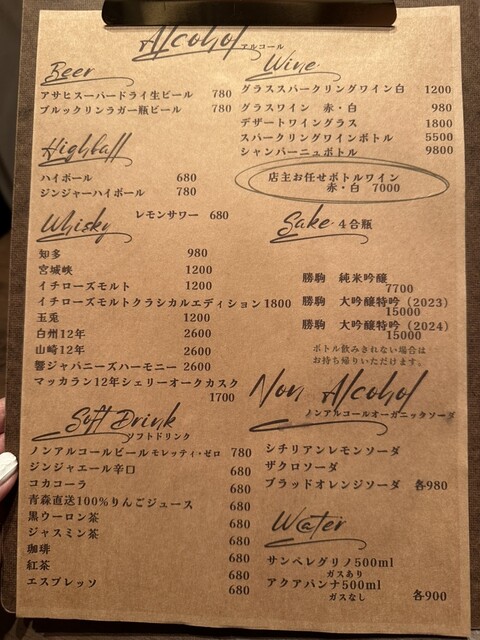 Alcohol アルコール
Beer
アサヒスーパードライ生ビール 780
ブルックリンラガー瓶ビール 780
Wine
グラススパークリングワイン白 1200
グラスワイン 赤・白 980
デザートワイングラス 1800
スパークリングワインボトル 5500
シャンパーニュボトル 9800
店主お任せボトルワイン
赤・白 7000
Highball
ハイボール 680
ジンジャーハイボール 780
レモンサワー 680
Whisky
知多 980
宮城峡 1200
イチローズモルト 1200
イチローズモルトクラシカルエディション1800
玉兎 1200
白州12年 2600
山崎12年 2600
響ジャパニーズハーモニー 2600
マッカラン12年シェリーオークカスク
1700
Sake 4合瓶
勝駒 純米吟醸
7700
勝駒 大吟醸特吟(2023)
15000
勝駒 大吟醸特吟(2024)
15000
ボトル飲みきれない場合は
お持ち帰りいただけます。
Soft Drink
ソフトドリンク
ノンアルコールビールモレッティ・ゼロ 780
ジンジャエール辛口 680
コカコーラ 680
青森直送100%りんごジュース 680
黒ウーロン茶 680
ジャスミン茶 680
珈琲 680
紅茶 680
エスプレッソ 680
Non Alcohol
ノンアルコールオーガニックソーダ
シチリアンレモンソーダ
ザクロソーダ
ブラッドオレンジソーダ 各980
Water
サンペレグリノ500ml
ガスあり
アクアパンナ500ml
ガスなし 各900